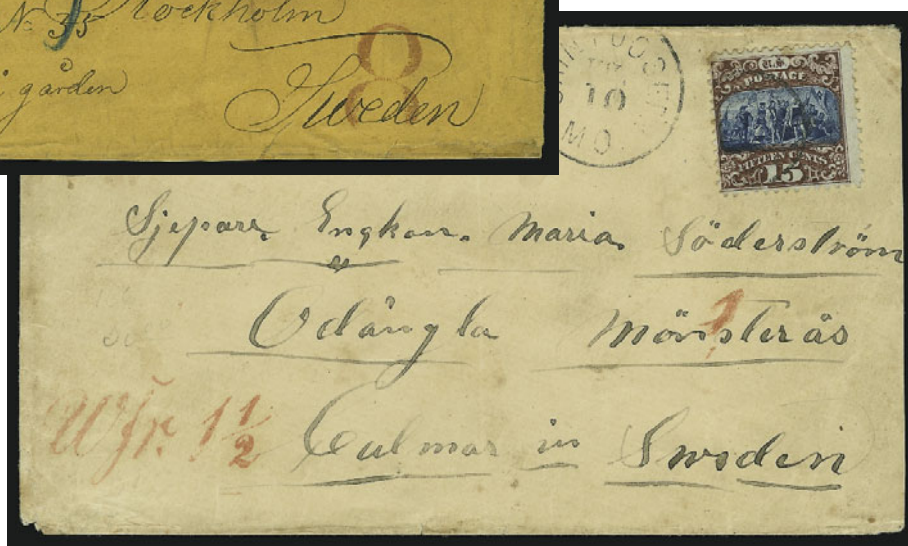 No 35 Stockholm
gården
8
Sweden
10
MO.
U.S.
POSTAGE
FIFTEEN CENTS
15
Enkan. Maria Söderström
Ödångla Mönsterås
1
Wfr. 1 1/2 Calmar in Sweden